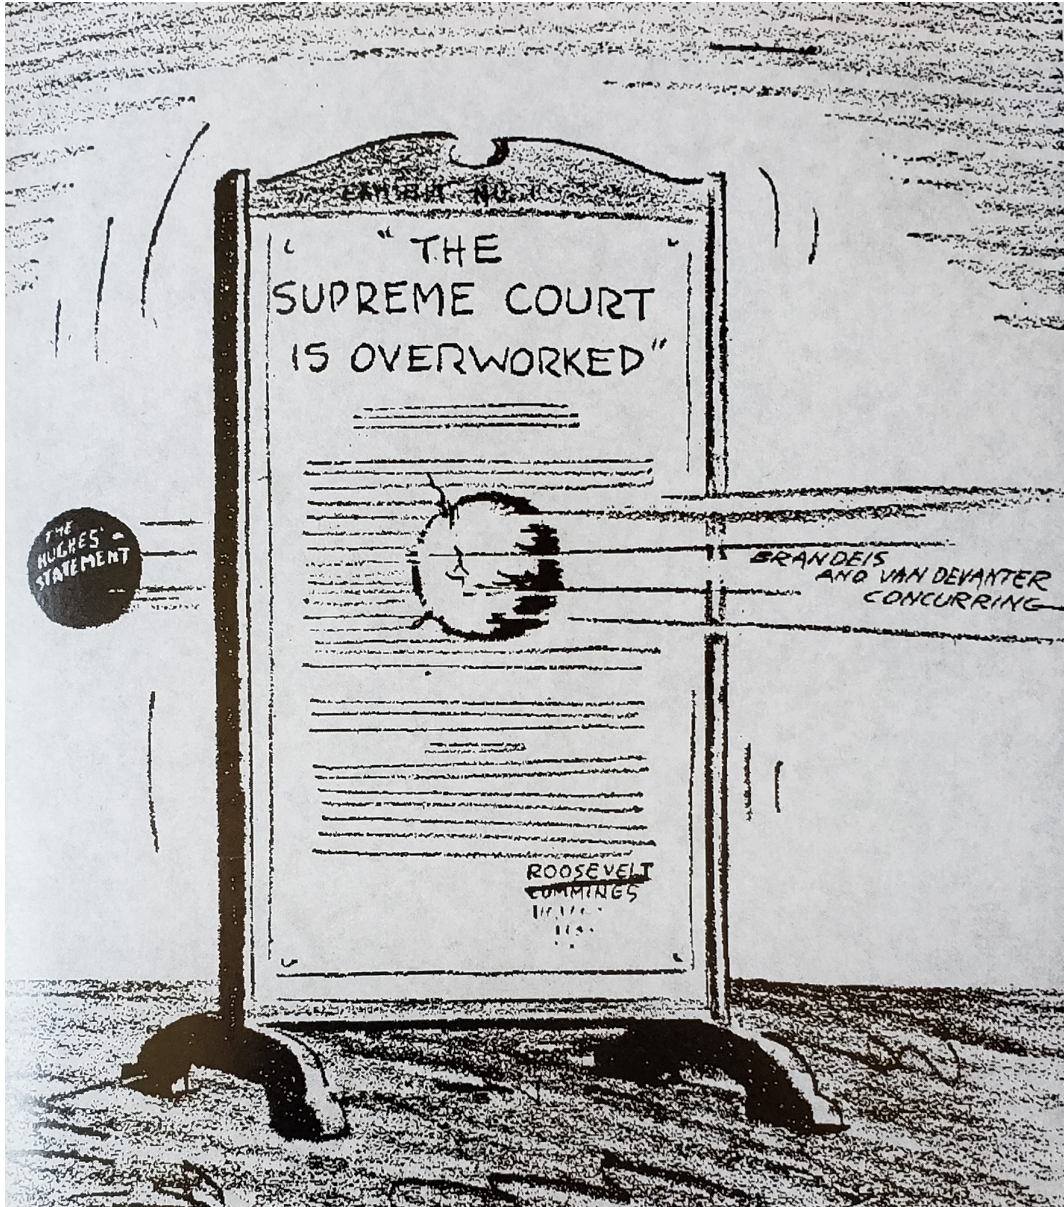 EXHIBIT NO. 1
" THE
SUPREME COURT
IS OVERWORKED"
THE
HUGHES'
STATEMENT
BRANDEIS
AND VAN DEVANTER
CONCURRING
ROOSEVELT
CUMMINGS